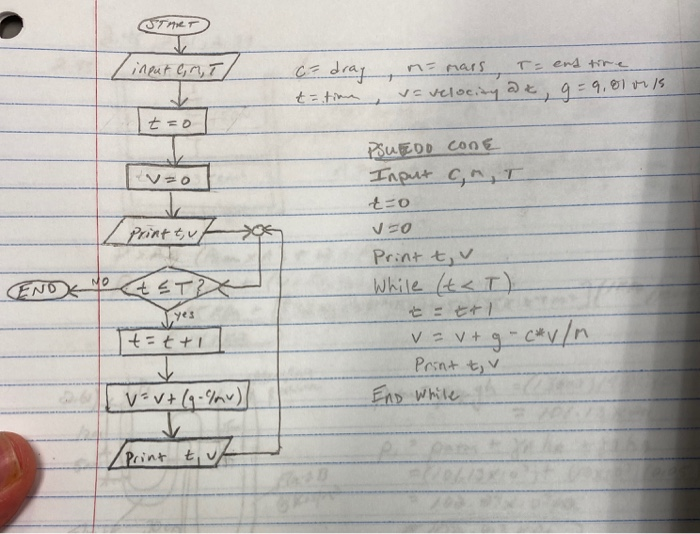 START
input C, m, T
t = 0
V = 0
Print t, v
t ≤ T?
NO
END
yes
t = t + 1
V = V + (g - c/m v)
Print t, v
C = drag , m = mars , T = end time
t = time , V = velocity @ t , g = 9.81 m/s
PSUEDO CODE
Input C, m, T
t = 0
V = 0
Print t, v
While (t < T)
t = t + 1
V = V + g - c*v/m
Print t, v
END While